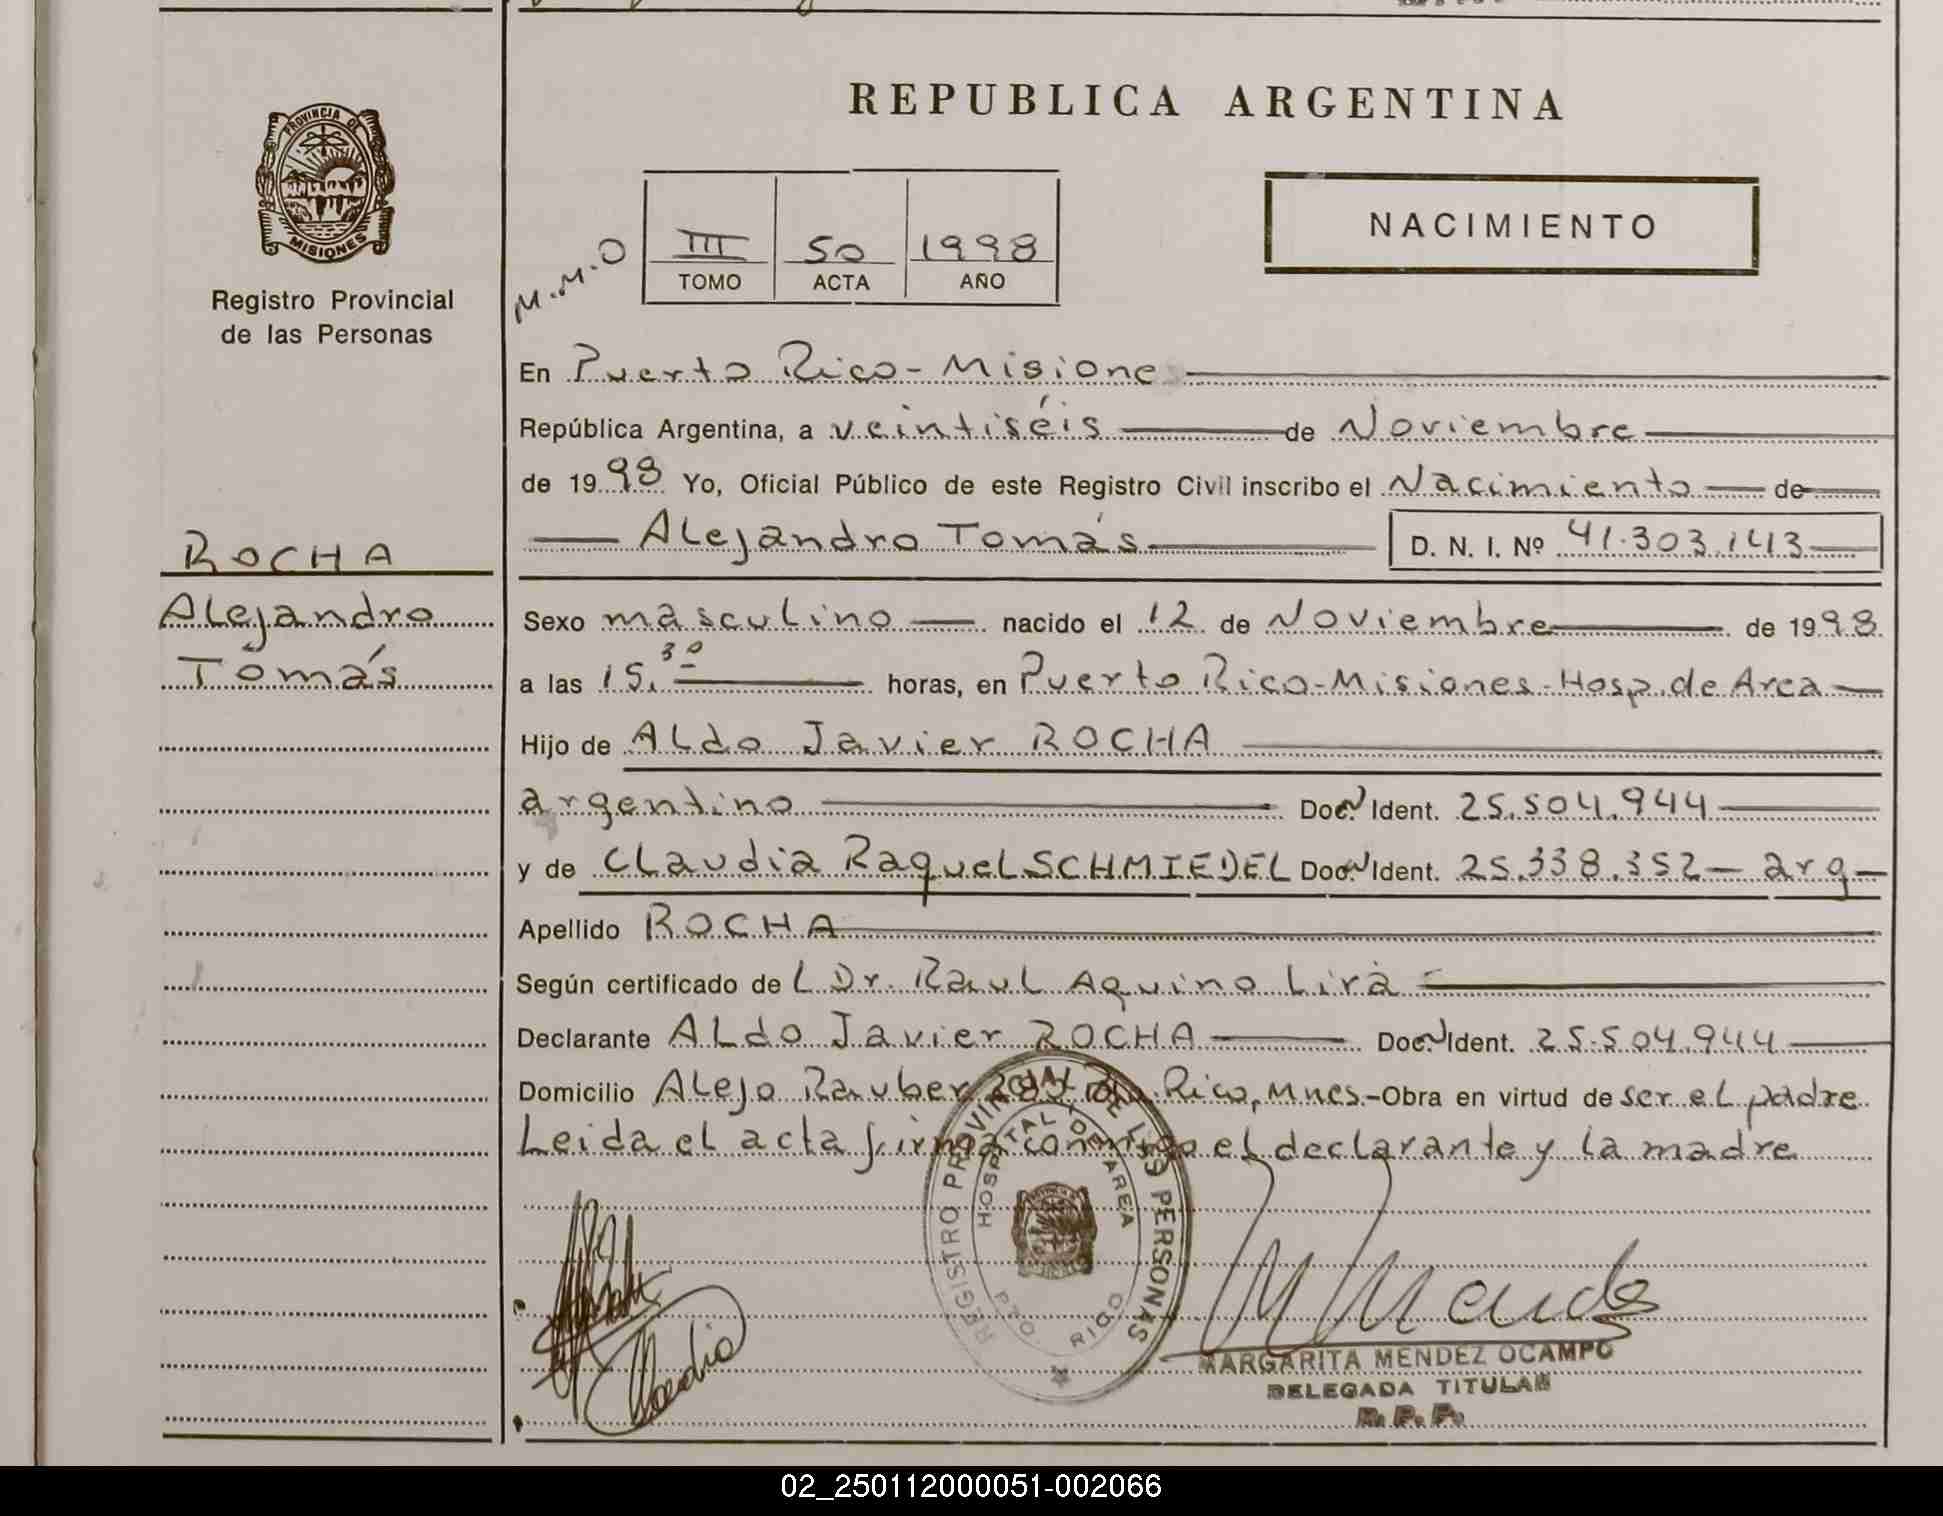 REPUBLICA ARGENTINA
PROVINCIA DE
MISIONES
Registro Provincial
de las Personas
NACIMIENTO
M.M.O
III 50 1998
TOMO ACTA AÑO
En Puerto Rico - Misione
República Argentina, a veintiséis de Noviembre
de 1998 Yo, Oficial Público de este Registro Civil inscribo el Nacimiento de
Alejandro Tomás D. N. I. Nº 41.303.143
ROCHA
Alejandro
Tomás
Sexo masculino nacido el 12 de Noviembre de 1998
a las 15.30 horas, en Puerto Rico-Misiones-Hosp. de Area
Hijo de Aldo Javier ROCHA
argentino Doc. N Ident. 25.504.944
y de Claudia Raquel SCHMIEDEL Doc. N Ident. 25.338.352 - arg
Apellido ROCHA
Según certificado de L Dr. Raul Aquino Lirà
Declarante ALdo Javier ROCHA Doc. N Ident. 25.504.944
Domicilio Alejo Rauber Rico, Mnes.-Obra en virtud de ser el padre
Leida el acta firma conmigo el declarante y la madre
REGISTRO PROVINCIAL DE LAS PERSONAS
HOSPITAL DE AREA
PTO. RICO
Claudia
M Mendez
MARGARITA MENDEZ OCAMPO
DELEGADA TITULAR
R. P. P.
02_250112000051-002066